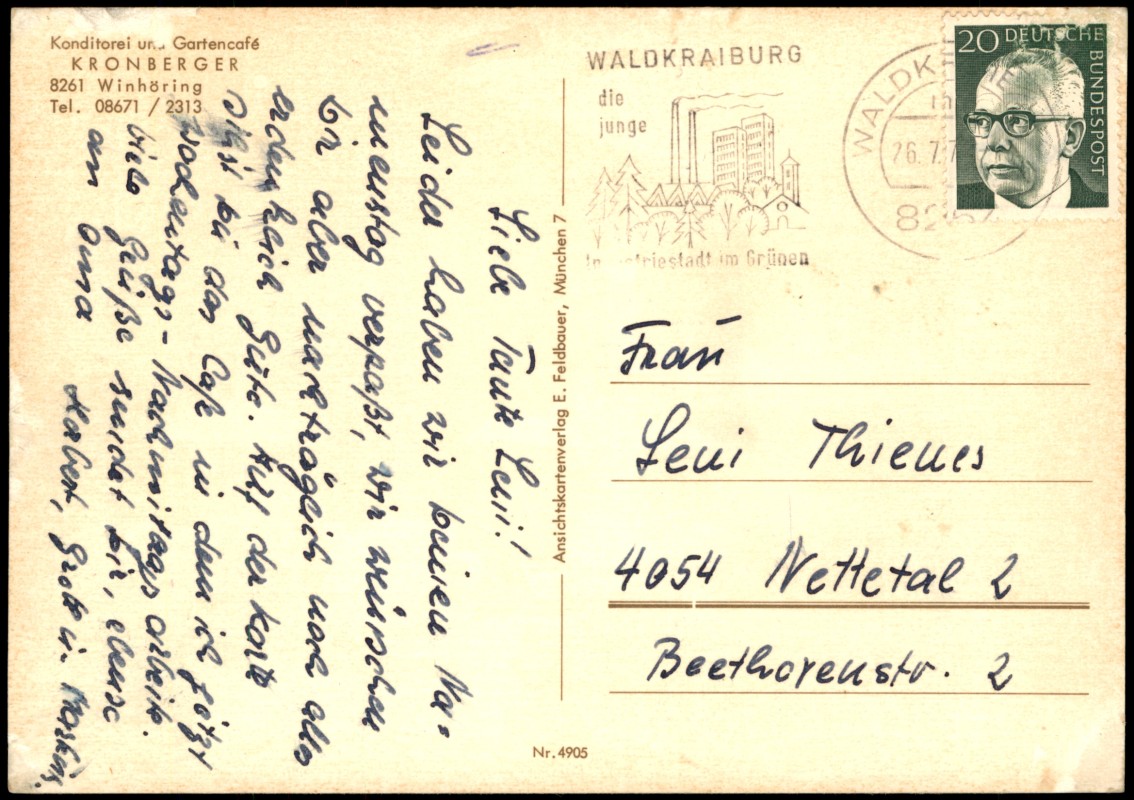 Konditorei und Gartencafé
KRONBERGER
8261 Winhöring
Tel. 08671 / 2313
Liebe Tante Leni!
Leider haben wir deinen Na-
menstag verpaßt, wir wünschen
Dir aber nachträglich noch alles
erdenklich Gute. Auf der Karte
siehst du das Café in dem ich jetzt
Wochentags-Nachmittags arbeite.
Viele Grüße sendet Dir, ebenso
an Oma
Herbert, Grete u. Martin.
Ansichtskartenverlag E. Feldbauer, München 7
Nr. 4905
WALDKRAIBURG
die
junge
Industriestadt im Grünen
WALDK
26.7.7
20 DEUTSCHE
BUNDESPOST
Frau
Leni Thienes
4054 Nettetal 2
Beethovenstr. 2